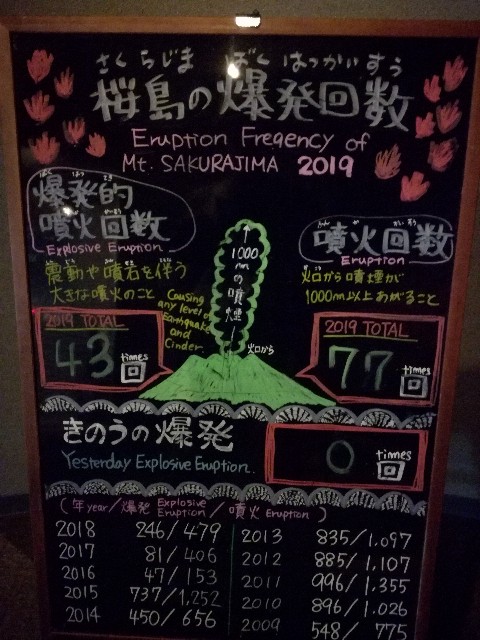 さくらじま ばくはつかいすう
桜島の爆発回数
Eruption Freqency of
Mt. SAKURAJIMA 2019
爆発的
噴火回数
Explosive Eruption
震動や噴石を伴う
大きな噴火のこと
Causing
any level of
Earthquake
and
Cinder.
2019 TOTAL
43 times
回
1000mの噴煙
火口から
噴火回数
Eruption
火口から噴煙が
1000m以上あがること
2019 TOTAL
77 times
回
きのうの爆発
Yesterday Explosive Eruption.
0 times
回
(年year/爆発 Explosive Eruption/噴火 Eruption)
2018 246/479
2017 81/406
2016 47/153
2015 737/1,252
2014 450/656
2013 835/1,097
2012 885/1,107
2011 996/1,355
2010 896/1,026
2009 548/775